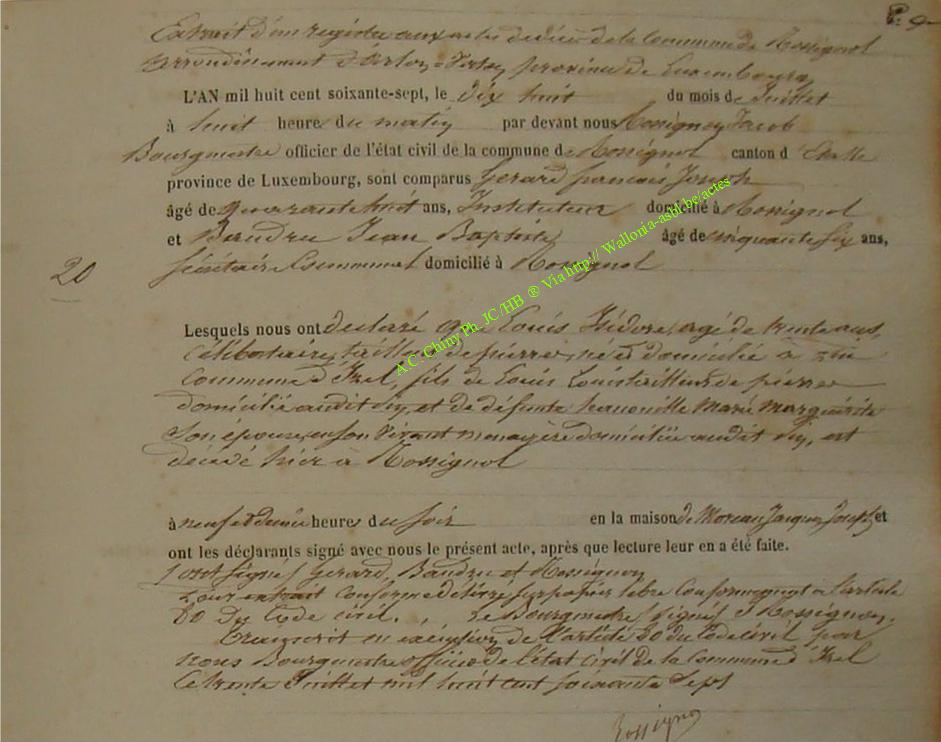 Extrait d'un registre aux actes de décès de la Commune de Rossignol
arrondissement d'Arlon-Virton province de Luxembourg
L'AN mil huit cent soixante-sept, le dix huit du mois de Juillet
à huit heures du matin par devant nous Rossignon Jacob
Bourgmestre officier de l'état civil de la commune de Rossignol canton d'Etalle
province de Luxembourg, sont comparus Gerard françois Joseph
âgé de quarante huit ans, Instituteur domicilié à Rossignol
et Baudru Jean Baptiste âgé de cinquante six ans,
Sécrétaire Communal domicilié à Rossignol
20
Lesquels nous ont declaré que Louis Isidore, agé de trente ans
célibataire, tailleur de pierres, né et domicilié a
commune d'Izel, fils de Louis Louis tailleur de pierres
domicilié audit et de défunte Marie Marguérite
Son épouse, en son vivant menagère domiciliée audit, est
décédé hier à Rossignol
à neuf et demie heures du soir en la maison de Moreau Jacques Joseph et
ont les déclarants signé avec nous le présent acte, après que lecture leur en a été faite.
sont signés Gerard, Baudru et Rossignon
Pour extrait conforme délivré sur papier libre conformement a l'article
80 Du Code civil. Le Bourgmestre signé J Rossignon.
Transcrit en exécution de l'article 80 du Code civil par
nous Bourgmestre officier de l'état civil de la Commune d'Izel
Ce trente Juillet mil huit cent soixante sept
A.C. Chiny Ph. JC/HB ® Via http// Wallonia-asbl.be/actes